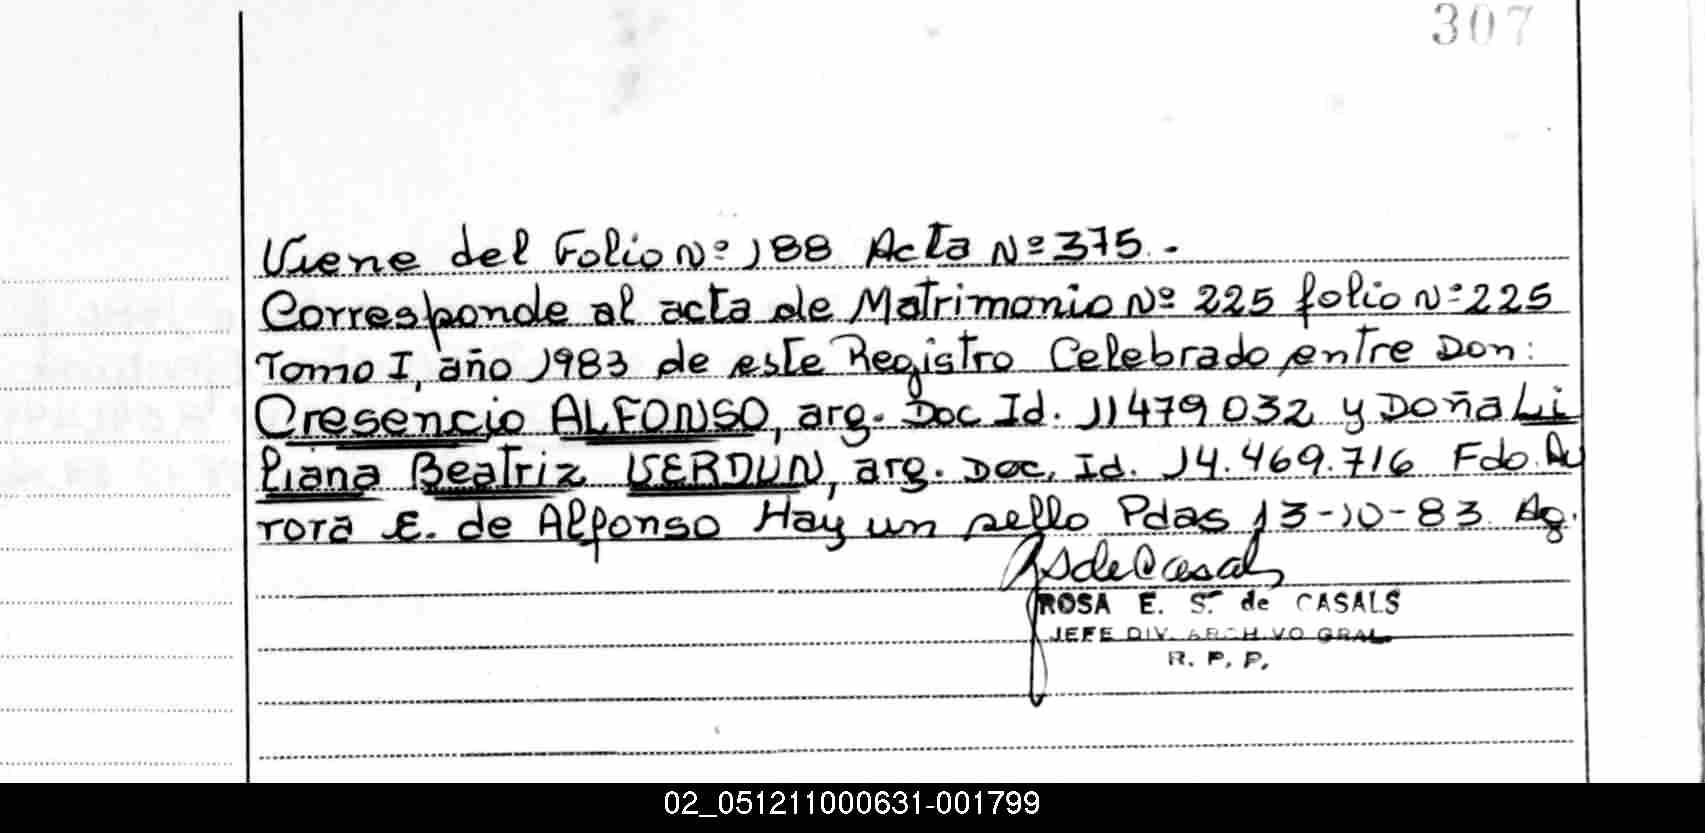 307
Viene del Folio Nº 188 Acta Nº 375.-
Corresponde al acta de Matrimonio Nº 225 folio Nº 225
Tomo I, año 1983 de este Registro Celebrado entre Don:
Cresencio ALFONSO, arg. Doc Id. 11479032 y Doña Li
liana Beatriz VERDUN, arg. Doc. Id. 14.469.716 Fdo. Au
rora E. de Alfonso Hay un sello Pdas 13-10-83 Ag.
RSdeCasals
ROSA E. S. de CASALS
JEFE DIV. ARCHIVO GRAL.
R. P. P.
02_051211000631-001799